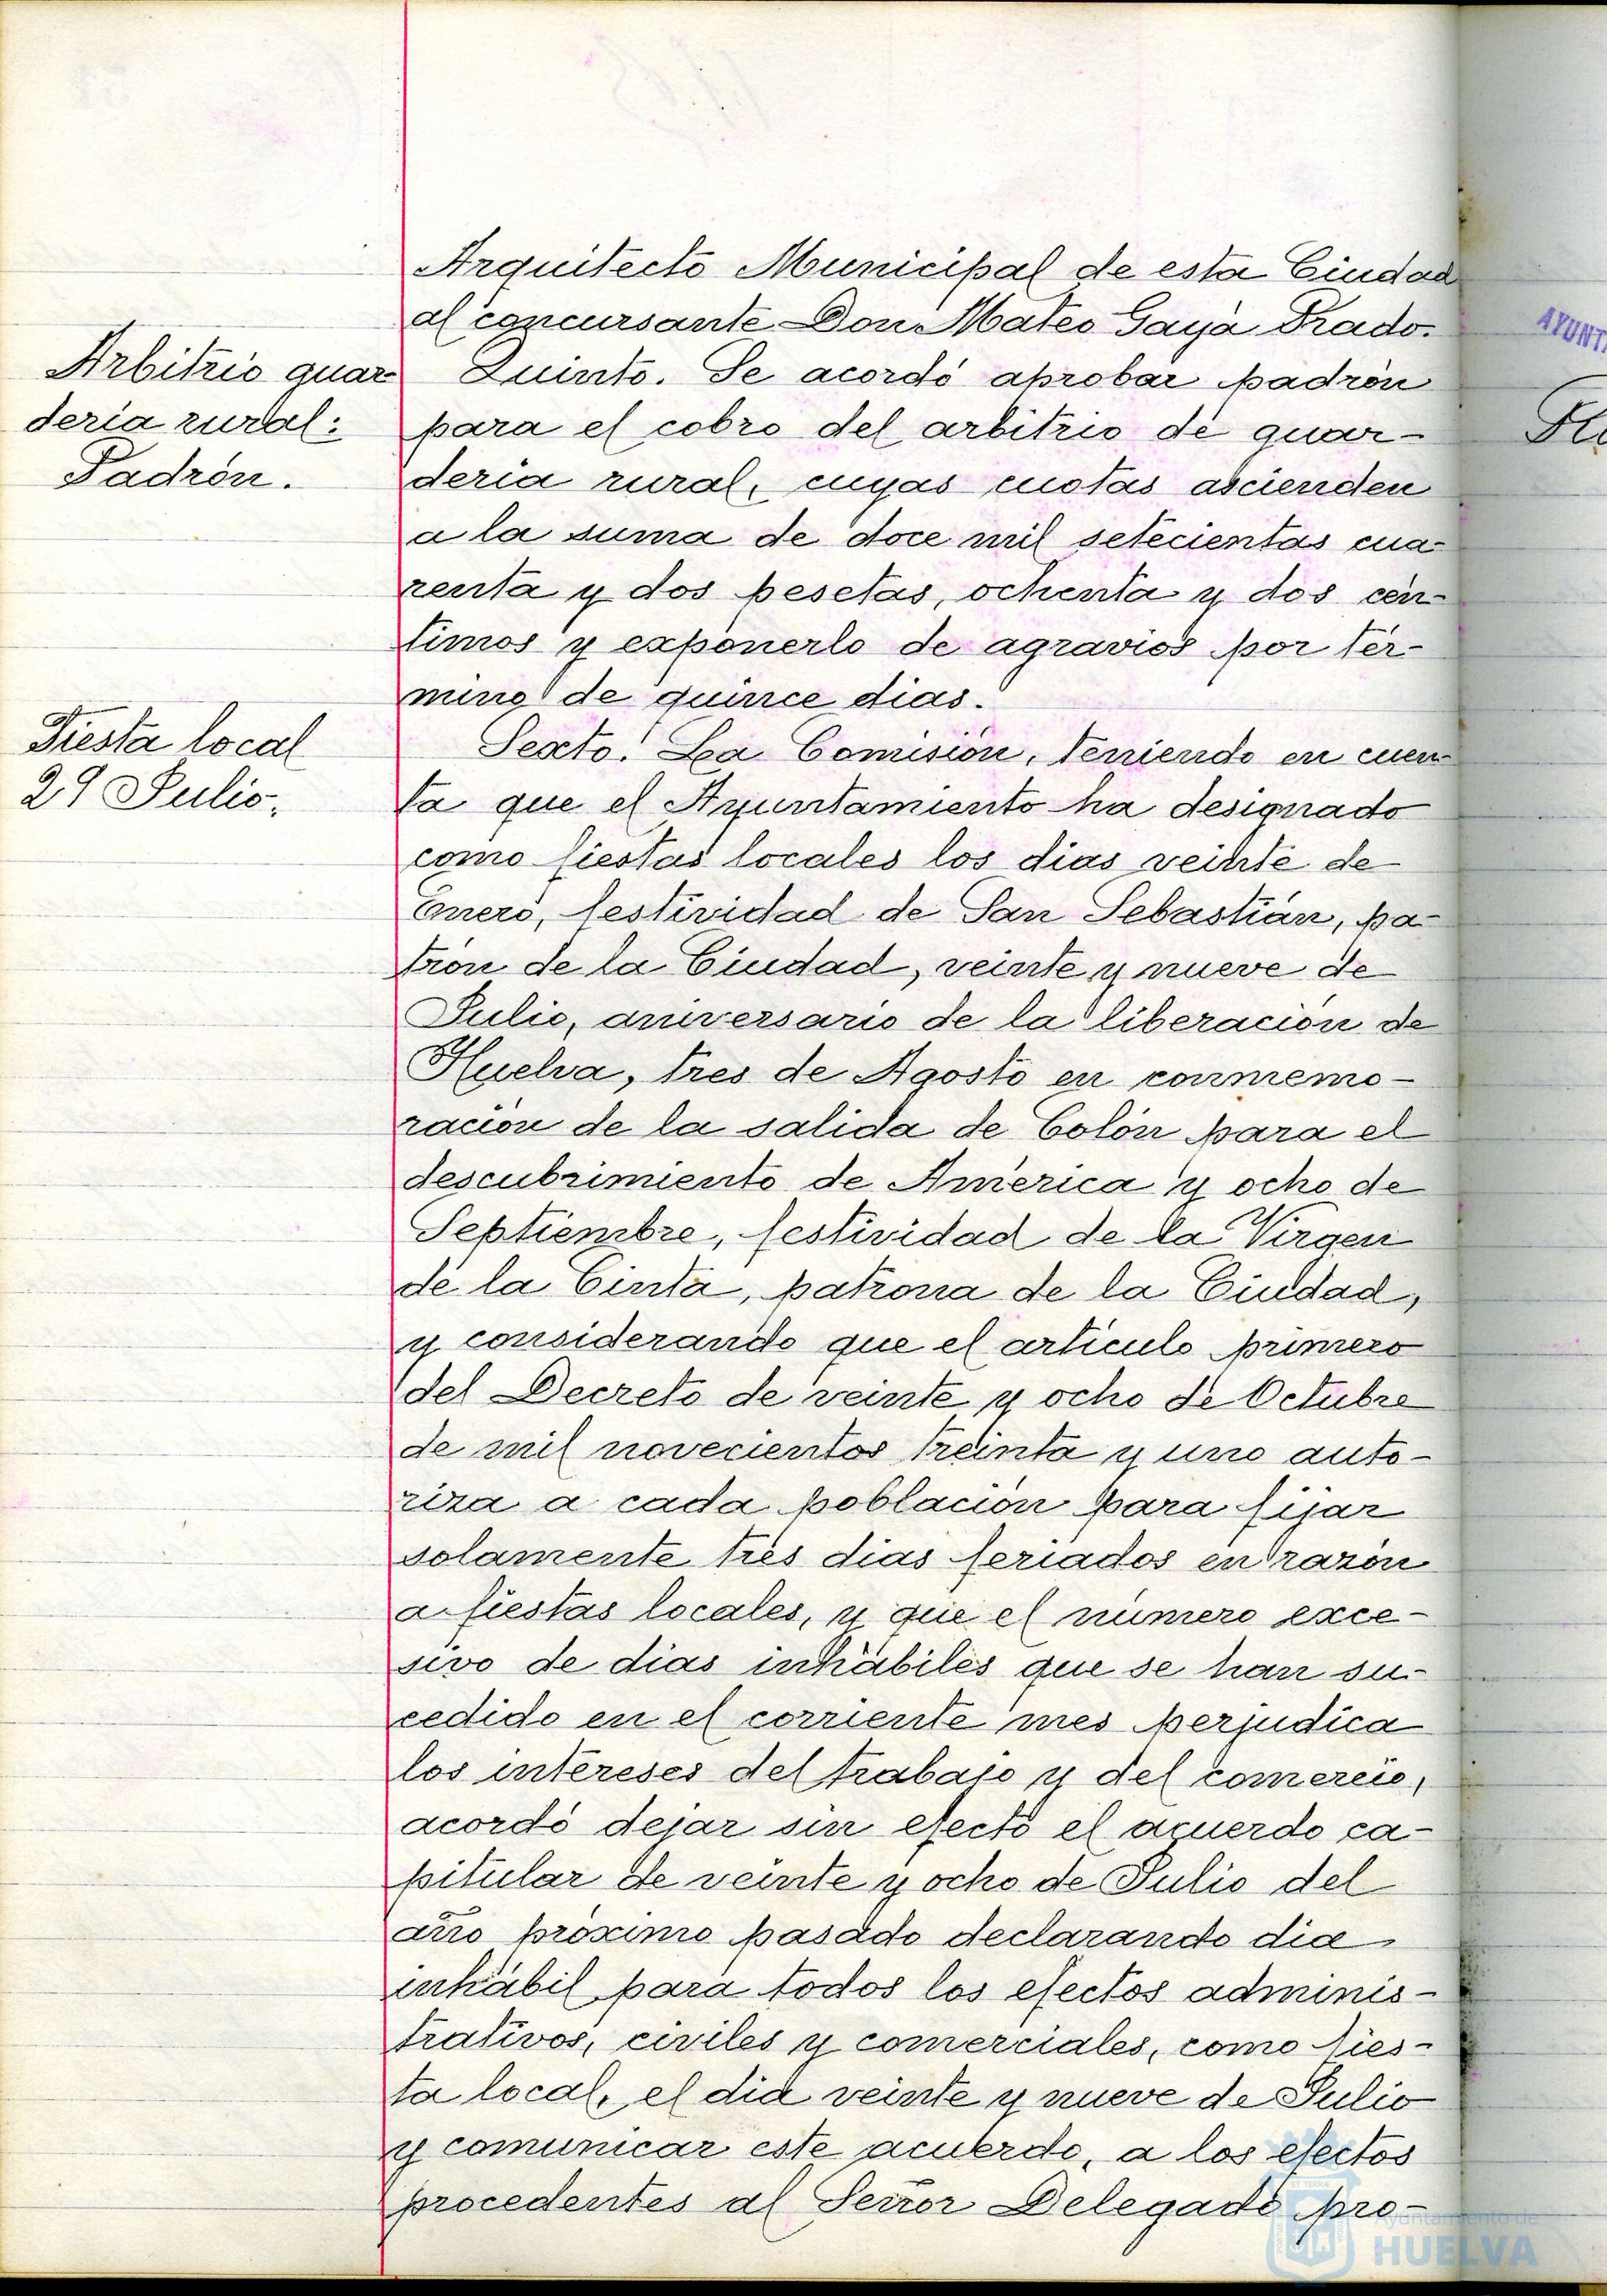 Arquitecto Municipal de esta Ciudad
al concursante Don Mateo Gaya Prado.
Arbitrio guar
deria rural:
Padrón.
Quinto. Se acordó aprobar padrón
para el cobro del arbitrio de guar-
deria rural, cuyas cuotas ascienden
a la suma de doce mil setecientas cua-
renta y dos pesetas, ochenta y dos cén-
timos y exponerlo de agravios por tér-
mino de quince dias.
Fiesta local
29 Julio.
Sexto. La Comisión, teniendo en cuen-
ta que el Ayuntamiento ha designado
como fiestas locales los dias veinte de
Enero, festividad de San Sebastián, pa-
trón de la Ciudad, veinte y nueve de
Julio, aniversario de la liberación de
Huelva, tres de Agosto en conmemo-
ración de la salida de Colón para el
descubrimiento de América y ocho de
Septiembre, festividad de la Virgen
de la Cinta, patrona de la Ciudad,
y considerando que el articulo primero
del Decreto de veinte y ocho de Octubre
de mil novecientos treinta y uno auto-
riza a cada población para fijar
solamente tres dias feriados en razón
a fiestas locales, y que el número exce-
sivo de dias inhábiles que se han su-
cedido en el corriente mes perjudica
los intereses del trabajo y del comercio,
acordó dejar sin efecto el acuerdo ca-
pitular de veinte y ocho de Julio del
año próximo pasado declarando dia
inhábil para todos los efectos adminis-
trativos, civiles y comerciales, como fies-
ta local, el dia veinte y nueve de Julio
y comunicar este acuerdo, a los efectos
procedentes al Señor Delegado pro-
AYUNT
Ayuntamiento de
HUELVA